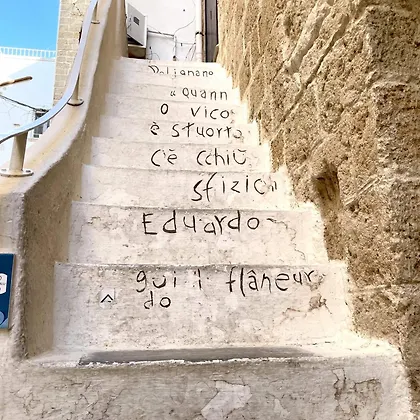 Polignano
a quann
o vico
è stuorto
c'è cchiù
sfizio
Eduardo
gui l flâneur
do